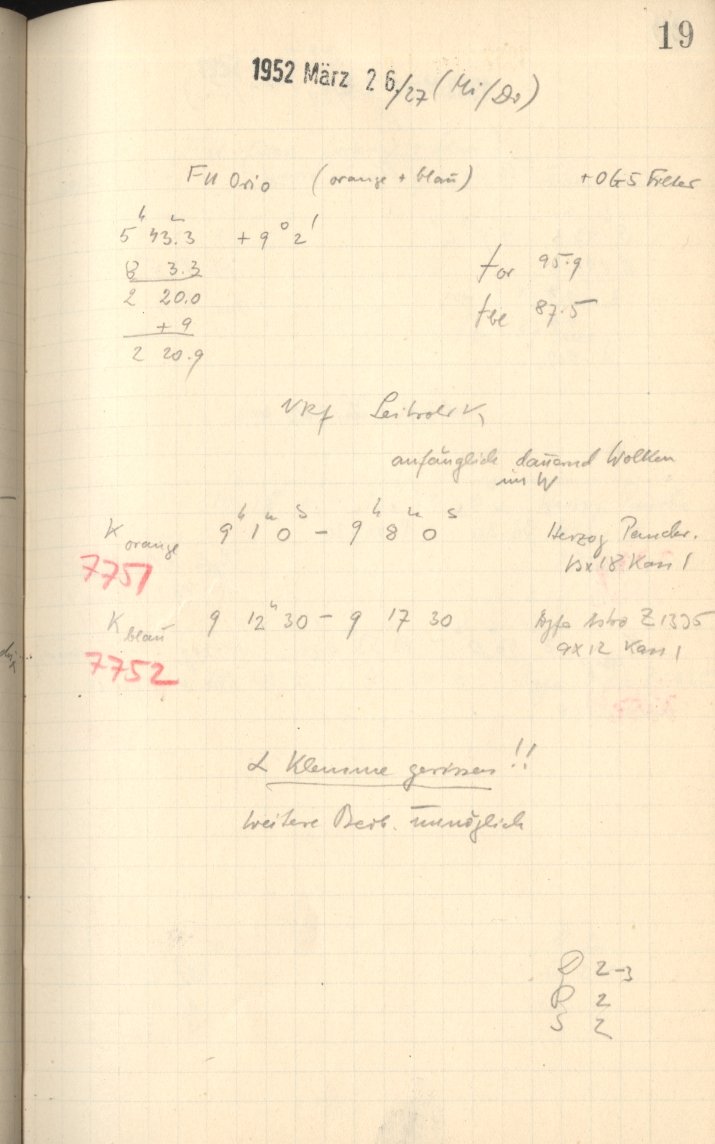 19
1952 März 26/27 (Mi/Do)
FU Orio (orange + blau) + OG5 Filter
5h 43.3m + 9° 2'
8 3.3
2 20.0
+ 9
2 20.9
for 95.9
fbl 87.5
VRf
anfänglich dauernd Wolken
im W
K orange 9h 1m 0s – 9h 8m 0s Herzog
7751
13x18 Kass 1
K blau 9 12m 30 – 9 17 30 Agfa Astro Z
7752
9x12 Kass 1
α Klemme gerissen!!
weitere Beob. unmöglich
2-3
2
S 2